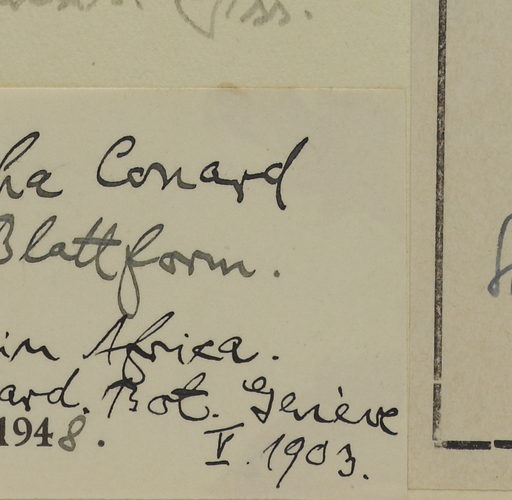 ha Conard
Blattform.
in Afrika.
ard. Bot. Genève
1948. V. 1903.